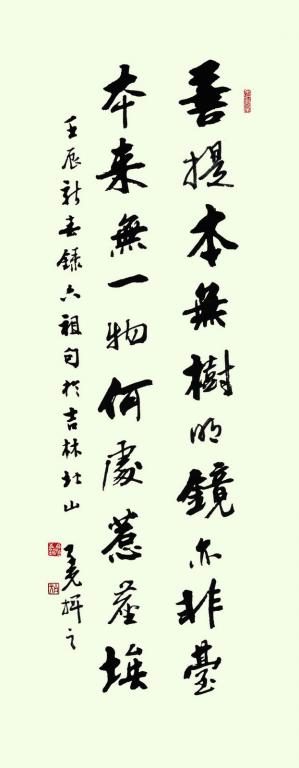 菩提本無樹明鏡亦非臺
本来無一物何處惹塵埃
壬辰新春錄六祖句於吉林北山